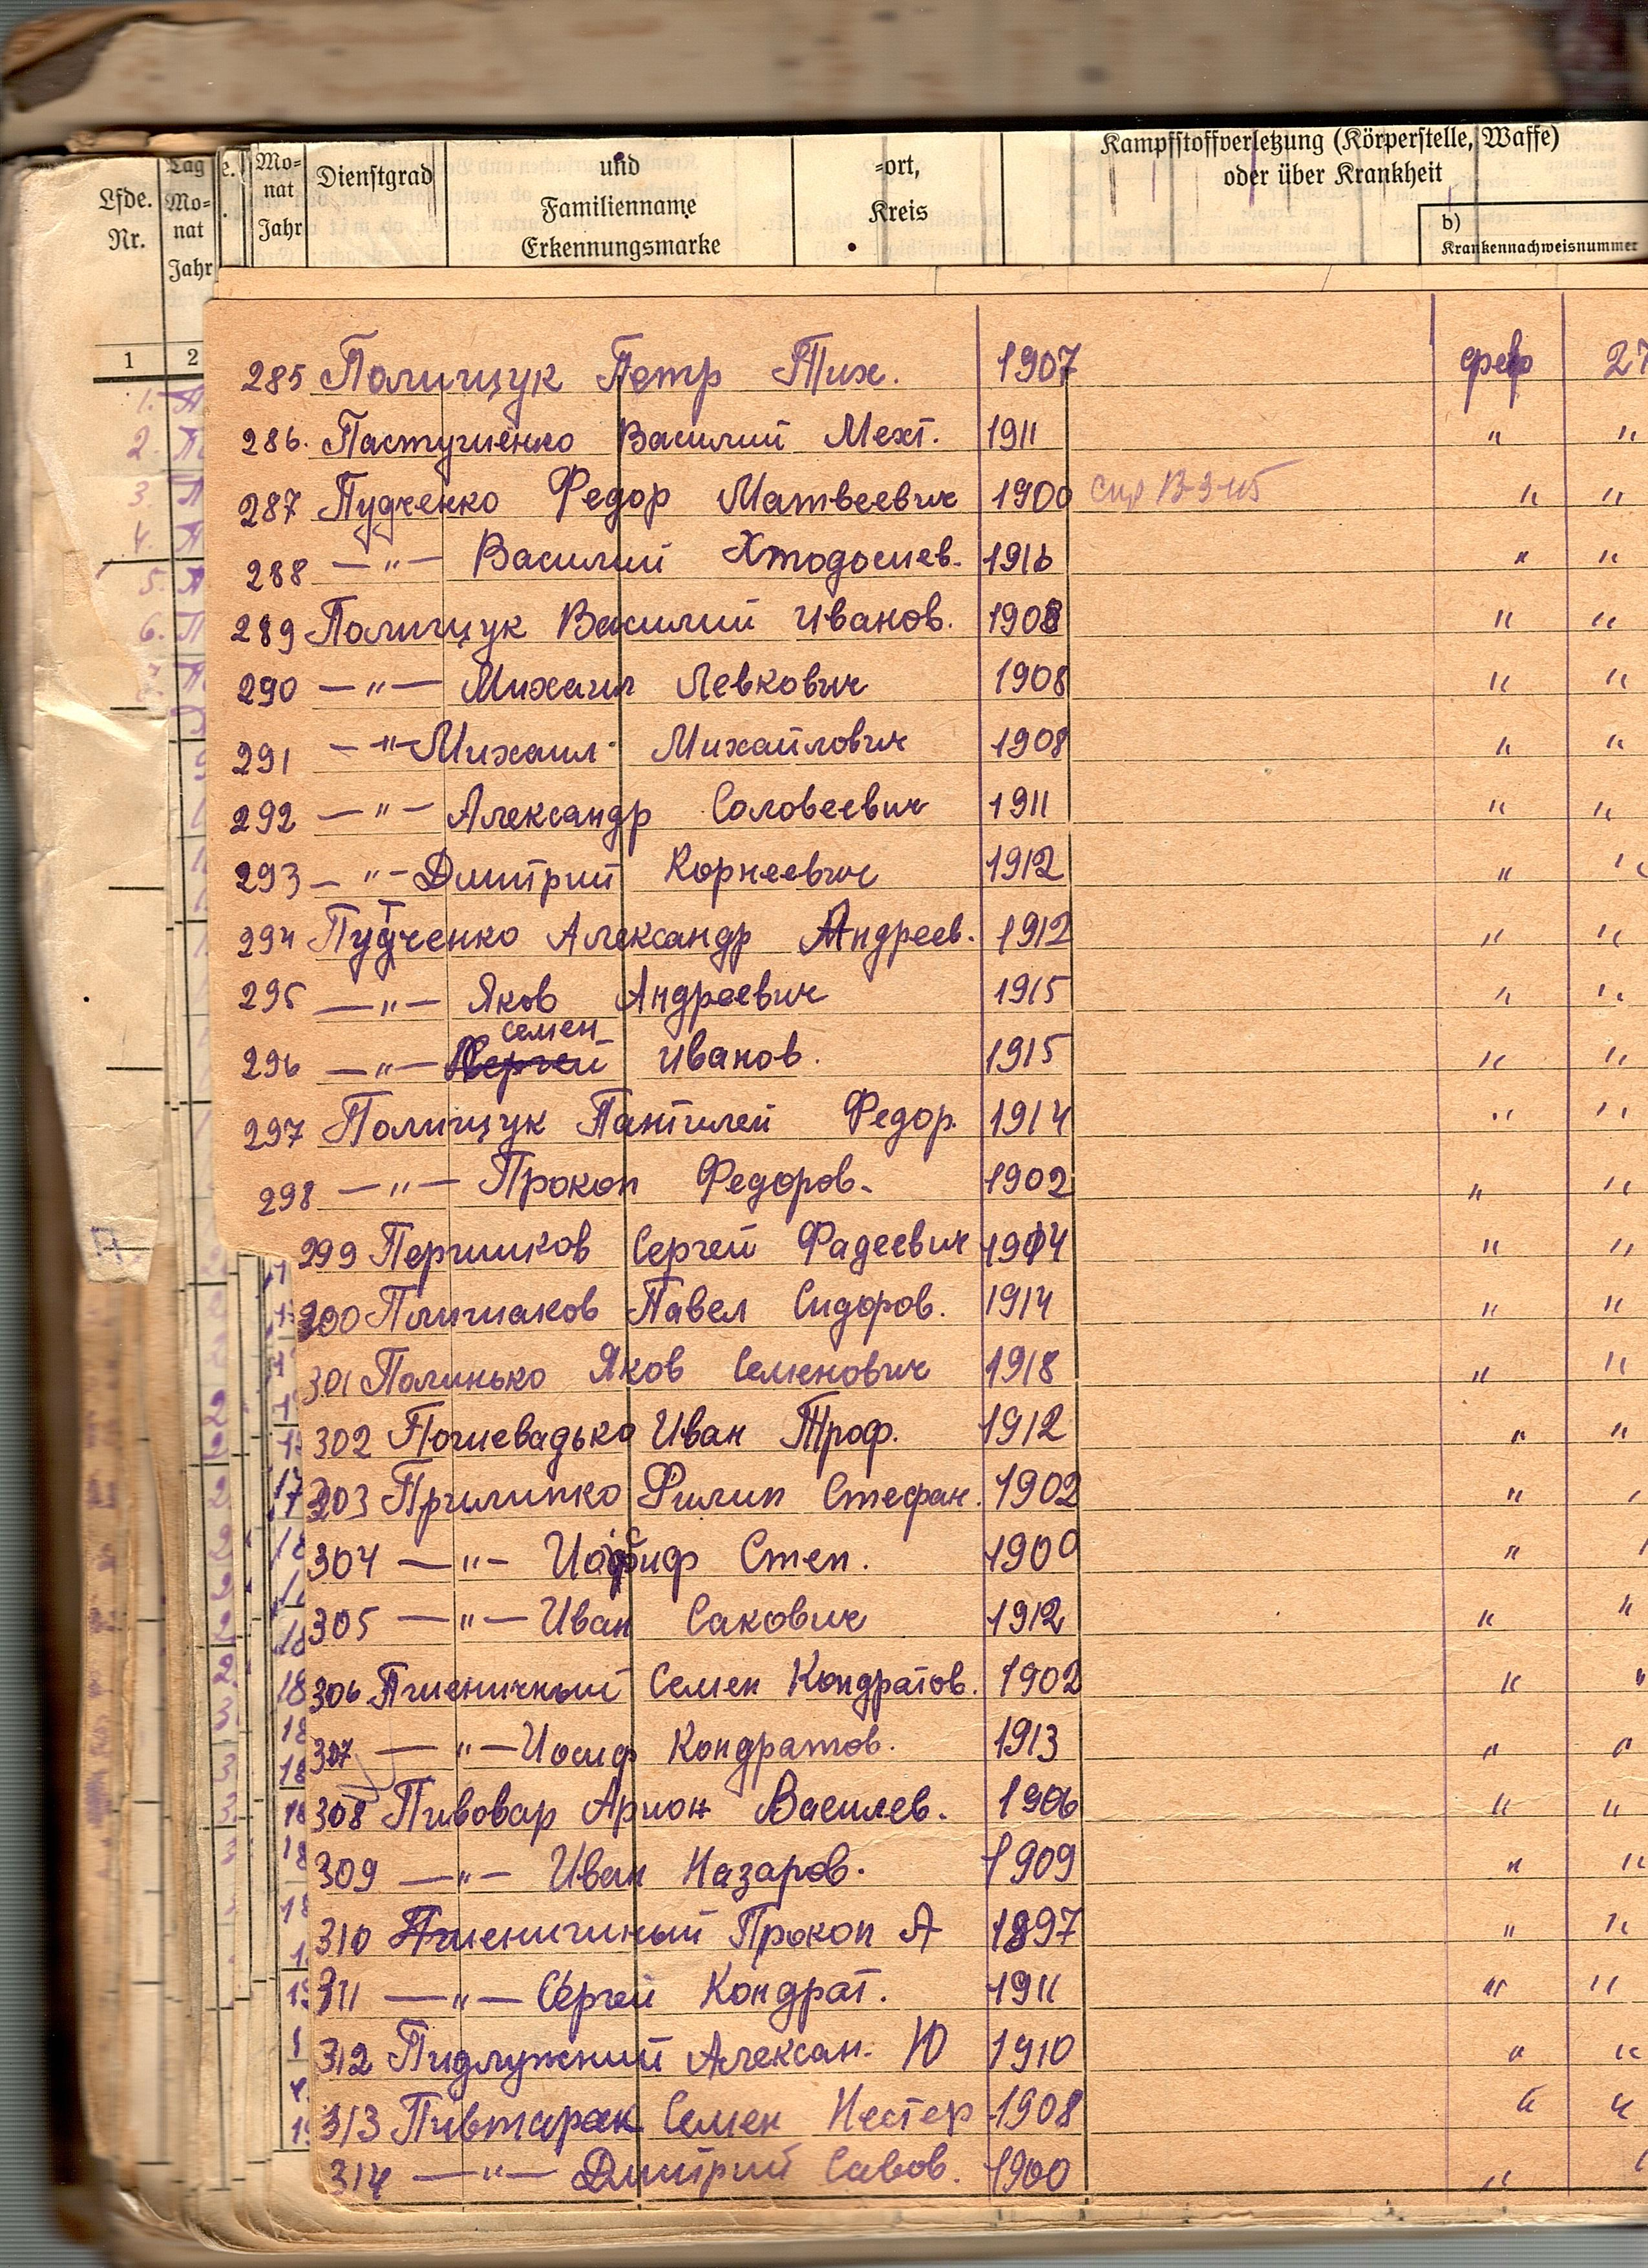 Lfde. Nr.
Tag Mo- nat Jahr
e.
Mo- nat Jahr
Dienstgrad
und Familienname Erkennungsmarke
-ort, Kreis
Kampfstoffverletzung (Körperstelle, Waffe) oder über Krankheit
b) Krankennachweisnummer
1 2
285 Полищук Петр Тих. 1907 фев 27
286. Пастушенко Василий Мехт. 1911 " "
287 Пудченко Федор Матвеевич 1900 " "
288 —"— Василий Хтодосиев. 1916 " "
289 Полищук Василий Иванов. 1908 " "
290 —"— Михаил Левкович 1908 " "
291 —"— Михаил Михайлович 1908 " "
292 —"— Александр Соловеевич 1911 " "
293 —"— Дмитрий Корнеевич 1912 " "
294 Путченко Александр Андреев. 1912 " "
295 —"— Яков Андреевич 1915 " "
семен
296 —"— Сергей Иванов. 1915 " "
297 Полищук Пантилей Федор. 1914 " "
298 —"— Прокоп Федоров. 1902 " "
299 Першиков Сергей Фадеевич 1914 " "
300 Плишаков Павел Сидоров. 1914 " "
301 Полинько Яков Семенович 1918 " "
302 Пошевадько Иван Троф. 1912 " "
303 Прилипко Филип Стефан. 1902 "
304 —"— Иосиф Степ. 1900 "
305 —"— Иван Сакович 1912 " "
306 Пшеничный Семен Кондратов. 1902 " "
307 —"— Иосиф Кондратов. 1913 " "
308 Пивовар Арион Василев. 1906 " "
309 —"— Иван Назаров. 1909 " "
310 Пшеничный Прокоп А 1897 " "
311 —"— Сергей Кондрат. 1911 " "
312 Пидлужний Алексан. Ю 1910 " "
313 Пивторак Семен Нестер 1908 " "
314 —"— Дмитрий Савов. 1900 "